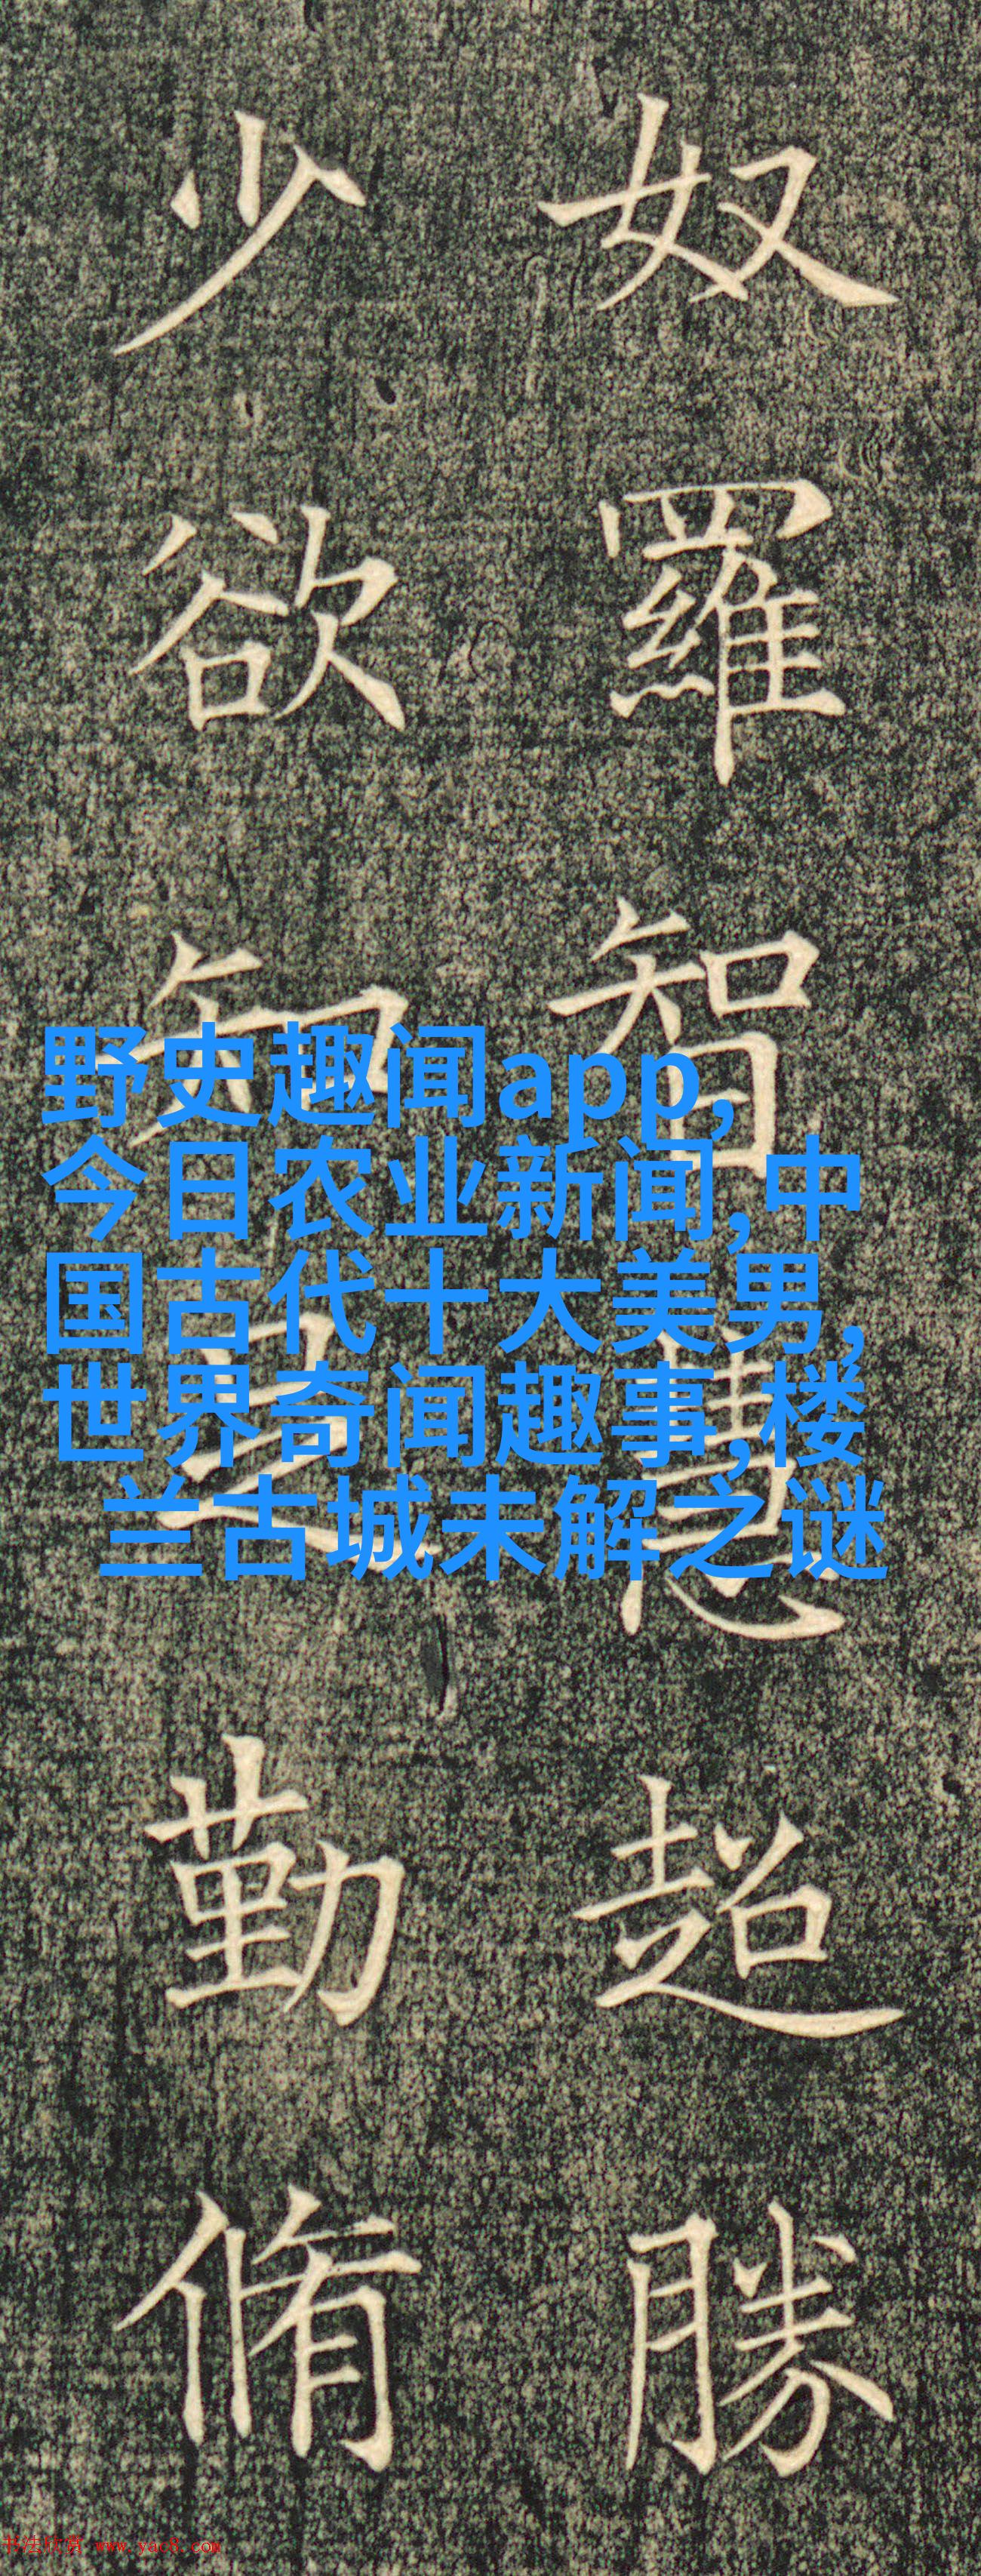 奴羅智慧超勝
少欲知足勤脩
野史趣闻app,
今日农业新闻,中
国古代十大美男,
世界奇闻趣事,楼
兰古城未解之谜
书法欣赏 www.yac8.com